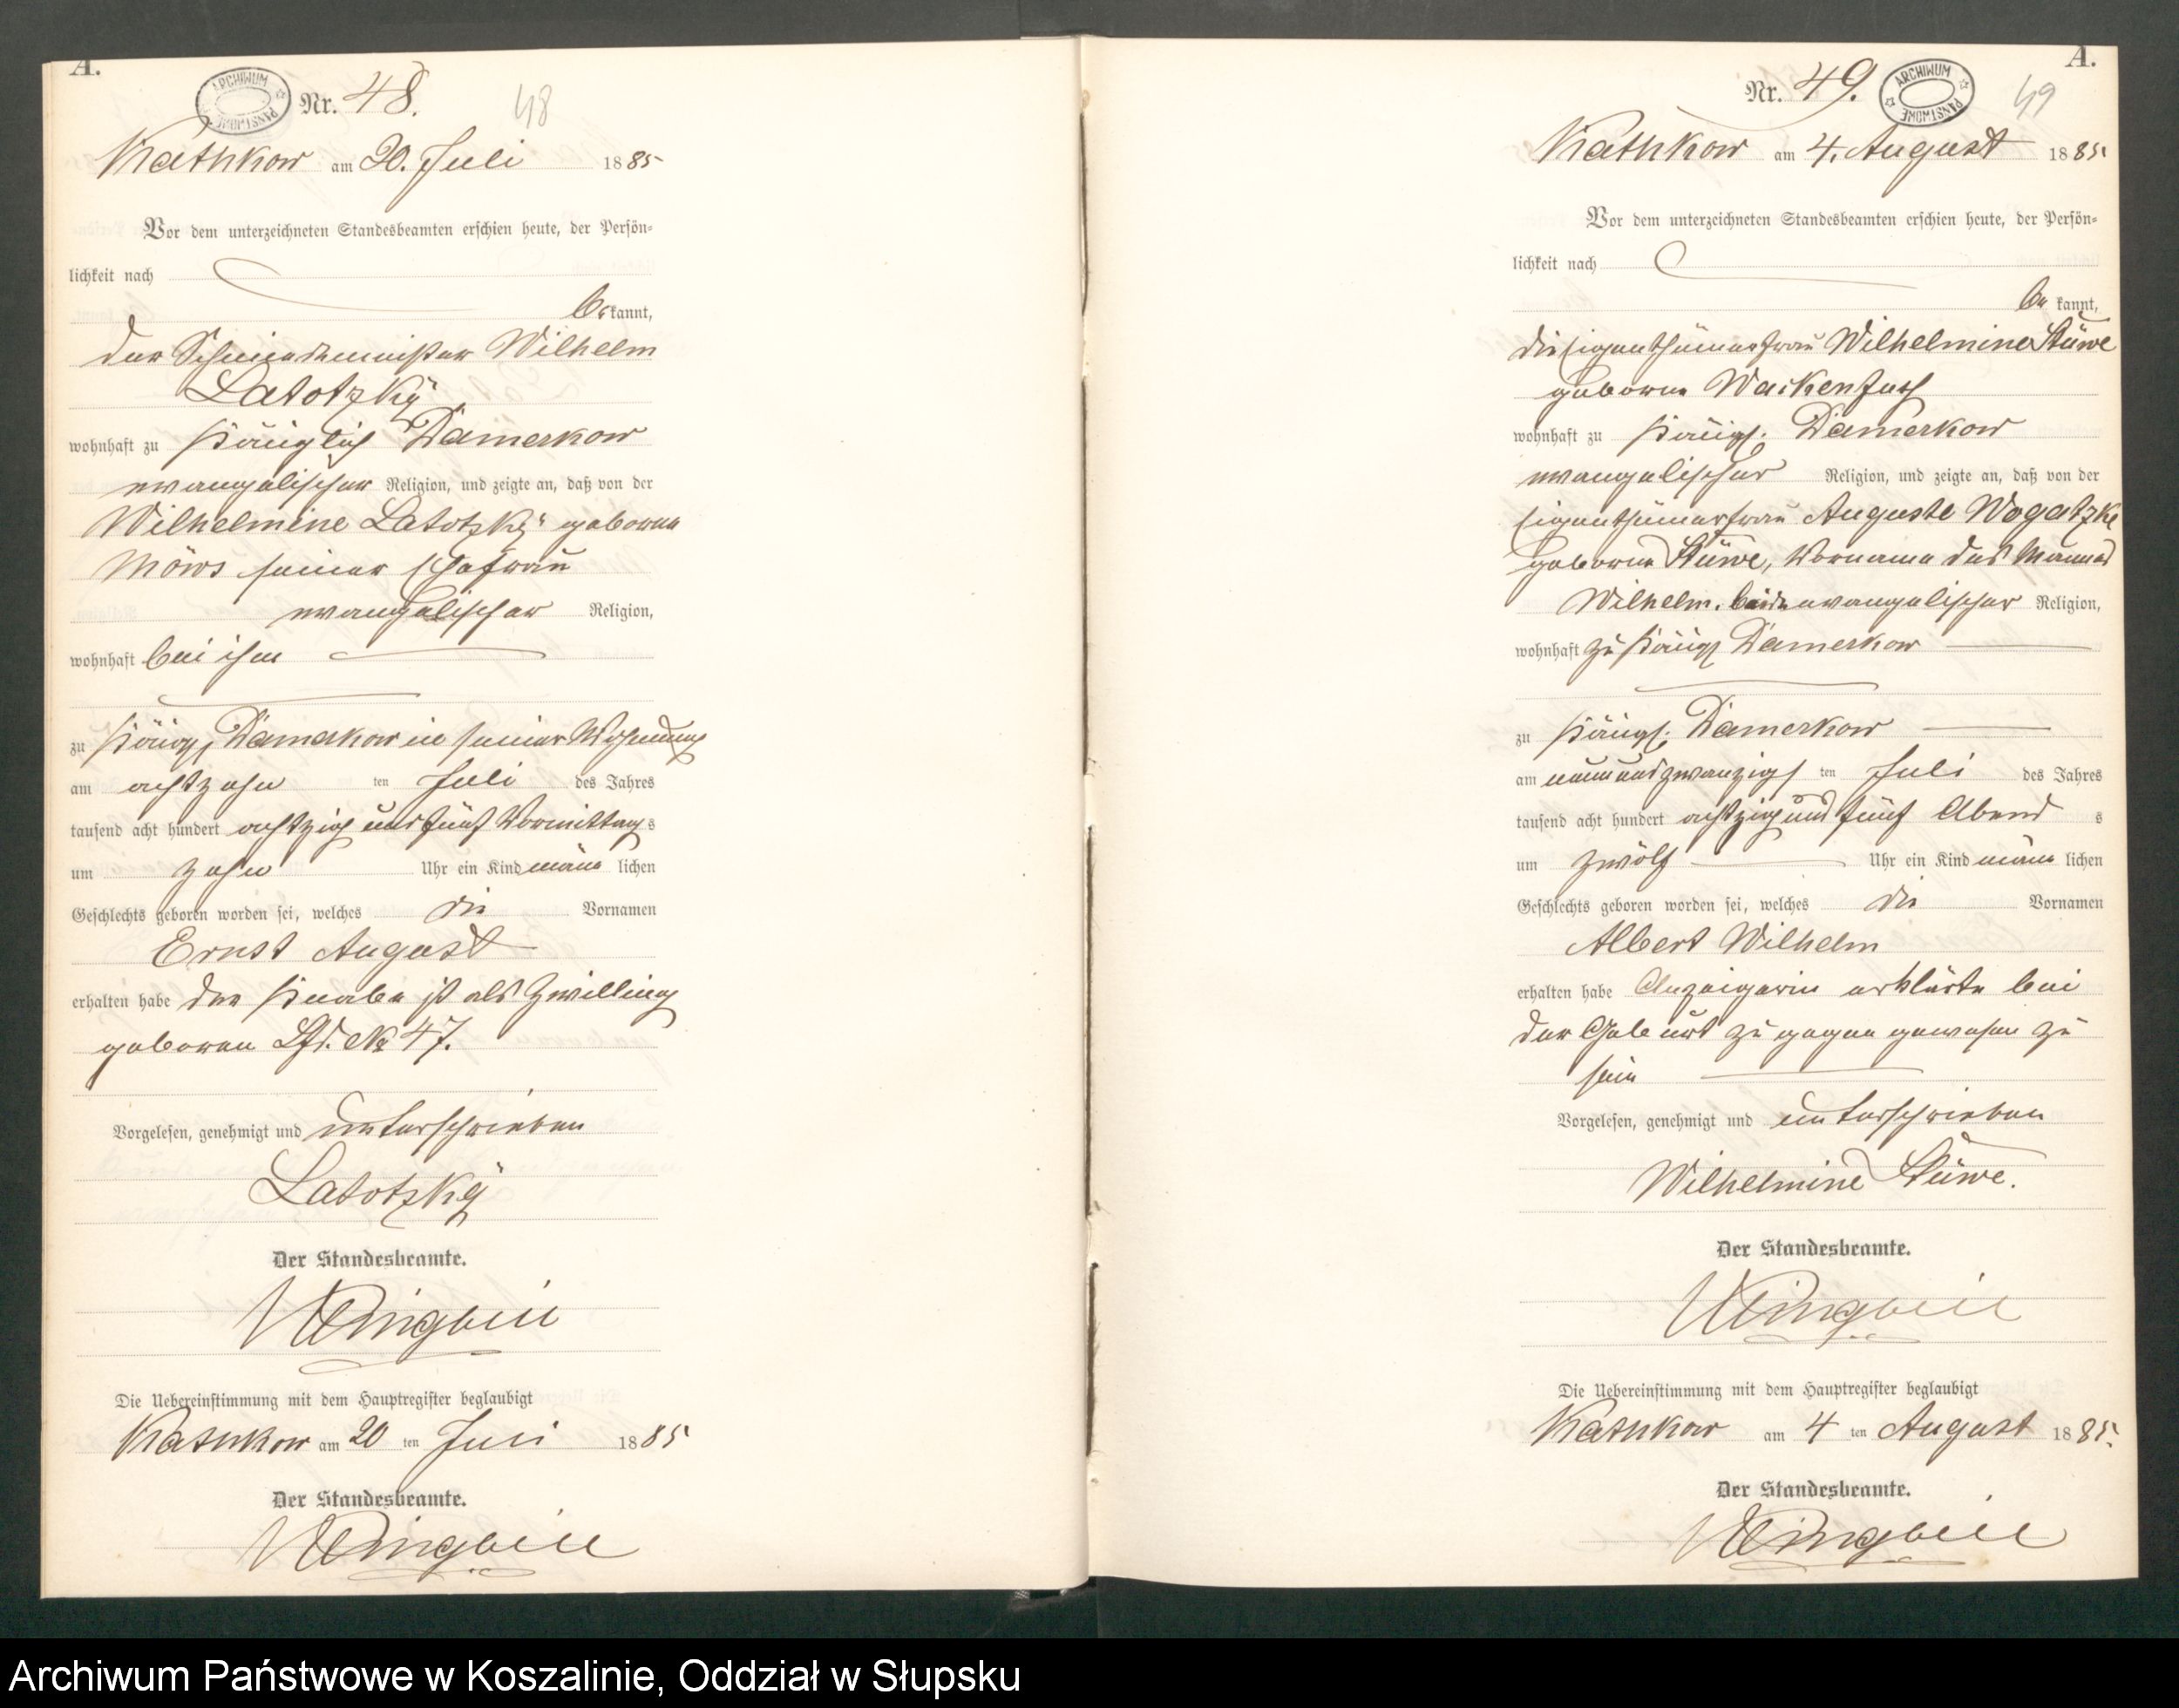 A.
ARCHIWUM PAŃSTWOWE
Nr. 48.
48
Kathkow am 20. Juli 1885
Vor dem unterzeichneten Standesbeamten erschien heute, der Persön-
lichkeit nach
be kannt,
der Schmiedemeister Wilhelm
Latotzky
wohnhaft zu Königlich Damerkow
evangelischer Religion, und zeigte an, daß von der
Wilhelmine Latotzky geborene
Möws seiner Ehefrau
evangelischer Religion,
wohnhaft bei ihm
zu Königl. Damerkow in seiner Wohnung
am achtzehn ten Juli des Jahres
tausend acht hundert achtzig und fünf Vormittag s
um zehn Uhr ein Kind männ lichen
Geschlechts geboren worden sei, welches die Vornamen
Ernst August
erhalten habe der Knabe ist als Zwilling
geboren Lfd. No 47.
Vorgelesen, genehmigt und unterschrieben
Latotzky
Der Standesbeamte.
Die Uebereinstimmung mit dem Hauptregister beglaubigt
Kathkow am 20 ten Juli 1885
Der Standesbeamte.
A.
Nr. 49.
ARCHIWUM PAŃSTWOWE
49
Kathkow am 4. August 1885
Vor dem unterzeichneten Standesbeamten erschien heute, der Persön-
lichkeit nach
be kannt,
die Eigenthümerfrau Wilhelmine Stüwe
geborne Wackenfuss
wohnhaft zu Königl. Damerkow
evangelischer Religion, und zeigte an, daß von der
Eigenthümerfrau Auguste Wogatzke
geborne Stüwe, Vorname des Mannes
Wilhelm. beide evangelischer Religion,
wohnhaft zu Königl Damerkow
zu Königl. Damerkow
am neunundzwanzigs ten Juli des Jahres
tausend acht hundert achtzig und fünf Abend s
um zwölf Uhr ein Kind männ lichen
Geschlechts geboren worden sei, welches die Vornamen
Albert Wilhelm
erhalten habe Anzeigerin erklärte bei
der Geburt zu gegen gewesen zu
sein
Vorgelesen, genehmigt und unterschrieben
Wilhelmine Stüwe.
Der Standesbeamte.
Die Uebereinstimmung mit dem Hauptregister beglaubigt
Kathkow am 4 ten August 1885.
Der Standesbeamte.
Archiwum Państwowe w Koszalinie, Oddział w Słupsku